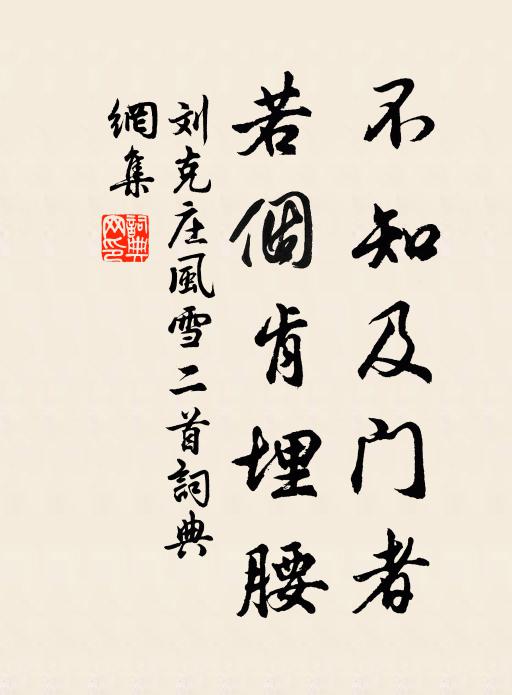 不知及门者
若個肯埋腰
刘克庄風雪二首詞典
網集
詞典
网印